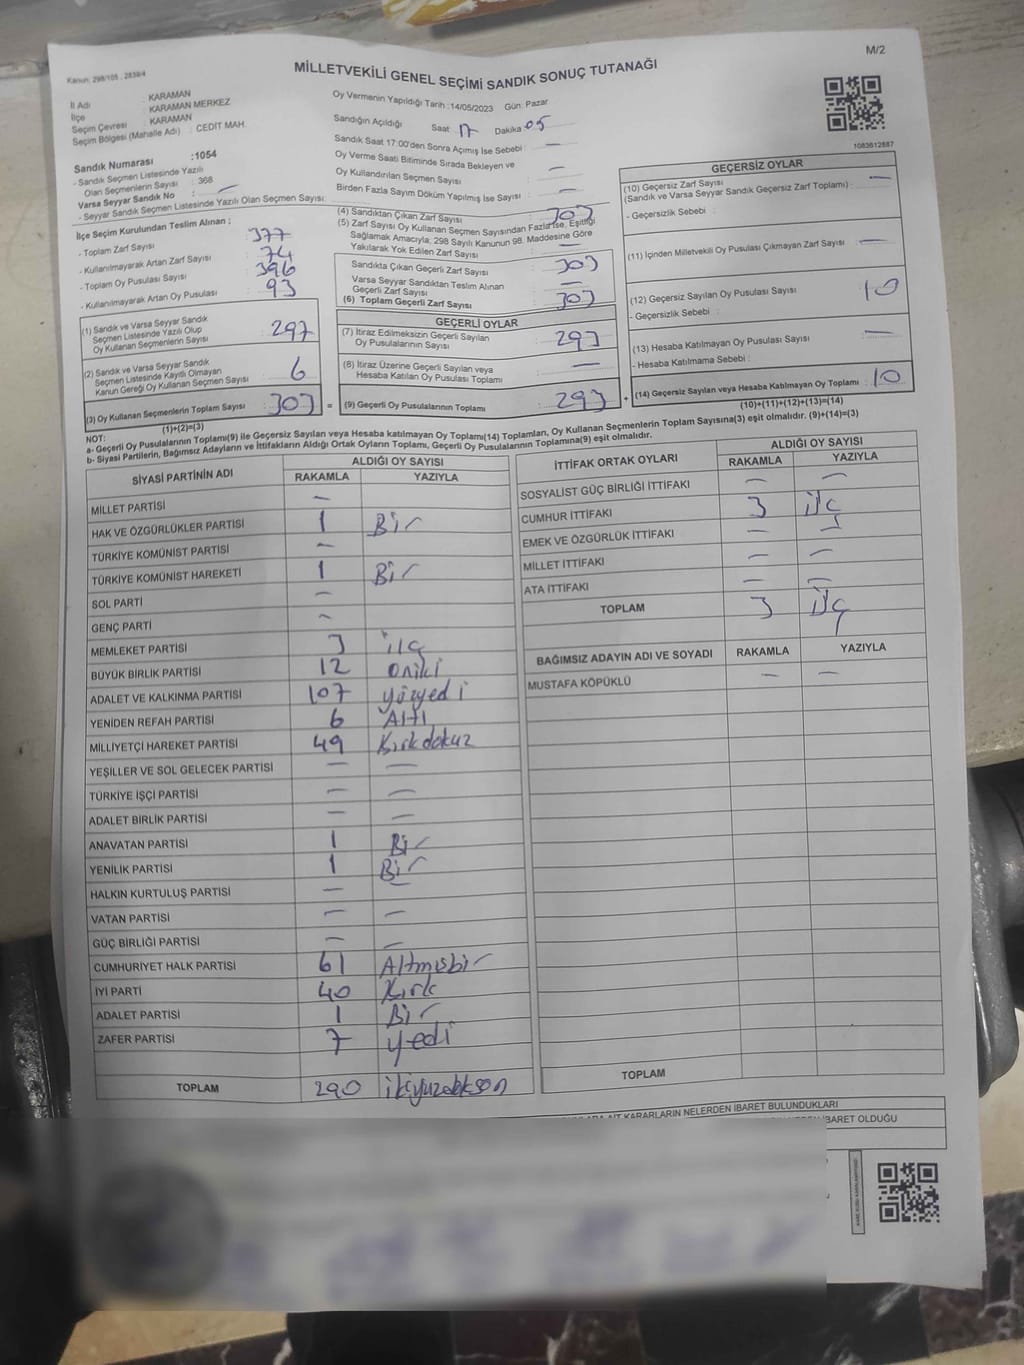 M/2
Kanun: 298/105 , 2839/4
MİLLETVEKİLİ GENEL SEÇİMİ SANDIK SONUÇ TUTANAĞI
İl Adı : KARAMAN
İlçe : KARAMAN MERKEZ
Seçim Çevresi : KARAMAN
Seçim Bölgesi (Mahalle Adı) : CEDİT MAH.
Sandık Numarası :1054
- Sandık Seçmen Listesinde Yazılı
Olan Seçmenlerin Sayısı : 368
Varsa Seyyar Sandık No : —
- Seyyar Sandık Seçmen Listesinde Yazılı Olan Seçmen Sayısı:
İlçe Seçim Kurulundan Teslim Alınan ;
- Toplam Zarf Sayısı 377
- Kullanılmayarak Artan Zarf Sayısı 74
- Toplam Oy Pusulası Sayısı 396
- Kullanılmayarak Artan Oy Pusulası 93
(1) Sandık ve Varsa Seyyar Sandık
Seçmen Listesinde Yazılı Olup
Oy Kullanan Seçmenlerin Sayısı : 297
(2) Sandık ve Varsa Seyyar Sandık
Seçmen Listesinde Kayıtlı Olmayan
Kanun Gereği Oy Kullanan Seçmen Sayısı : 6
(3) Oy Kullanan Seçmenlerin Toplam Sayısı : 303 =
(1)+(2)=(3)
Oy Vermenin Yapıldığı Tarih :14/05/2023 Gün: Pazar
Sandığın Açıldığı Saat 17 Dakika 05
Sandık Saat 17:00'den Sonra Açımış İse Sebebi : —
Oy Verme Saati Bitiminde Sırada Bekleyen ve
Oy Kullandırılan Seçmen Sayısı : —
Birden Fazla Sayım Döküm Yapılmış İse Sayısı : —
(4) Sandıktan Çıkan Zarf Sayısı : 303
(5) Zarf Sayısı Oy Kullanan Seçmen Sayısından Fazla ise, Eşitliği
Sağlamak Amacıyla, 298 Sayılı Kanunun 98. Maddesine Göre
Yakılarak Yok Edilen Zarf Sayısı : —
Sandıkta Çıkan Geçerli Zarf Sayısı : 303
Varsa Seyyar Sandıktan Teslim Alınan
Geçerli Zarf Sayısı : —
(6) Toplam Geçerli Zarf Sayısı : 303
GEÇERLİ OYLAR
(7) İtiraz Edilmeksizin Geçerli Sayılan
Oy Pusulalarının Sayısı : 293
(8) İtiraz Üzerine Geçerli Sayılan veya
Hesaba Katılan Oy Pusulası Toplamı : —
(9) Geçerli Oy Pusulalarının Toplamı : 293 +
1083612887
GEÇERSİZ OYLAR
(10) Geçersiz Zarf Sayısı
(Sandık ve Varsa Seyyar Sandık Geçersiz Zarf Toplamı) : —
- Geçersizlik Sebebi :
(11) İçinden Milletvekili Oy Pusulası Çıkmayan Zarf Sayısı : —
(12) Geçersiz Sayılan Oy Pusulası Sayısı : 10
- Geçersizlik Sebebi :
(13) Hesaba Katılmayan Oy Pusulası Sayısı : —
- Hesaba Katılmama Sebebi :
(14) Geçersiz Sayılan veya Hesaba Katılmayan Oy Toplamı : 10
(10)+(11)+(12)+(13)=(14)
NOT:
a- Geçerli Oy Pusulalarının Toplamı(9) ile Geçersiz Sayılan veya Hesaba katılmayan Oy Toplamı(14) Toplamları, Oy Kullanan Seçmenlerin Toplam Sayısına(3) eşit olmalıdır. (9)+(14)=(3)
b- Siyasi Partilerin, Bağımsız Adayların ve İttifakların Aldığı Ortak Oyların Toplamı, Geçerli Oy Pusulalarının Toplamına(9) eşit olmalıdır.
SİYASİ PARTİNİN ADI ALDIĞI OY SAYISI
RAKAMLA YAZIYLA
MİLLET PARTİSİ —
HAK VE ÖZGÜRLÜKLER PARTİSİ 1 Bir
TÜRKİYE KOMÜNİST PARTİSİ —
TÜRKİYE KOMÜNİST HAREKETİ 1 Bir
SOL PARTİ —
GENÇ PARTİ —
MEMLEKET PARTİSİ 3 üç
BÜYÜK BİRLİK PARTİSİ 12 oniki
ADALET VE KALKINMA PARTİSİ 107 yüzyedi
YENİDEN REFAH PARTİSİ 6 Altı
MİLLİYETÇİ HAREKET PARTİSİ 49 Kırkdokuz
YEŞİLLER VE SOL GELECEK PARTİSİ — —
TÜRKİYE İŞÇİ PARTİSİ — —
ADALET BİRLİK PARTİSİ — —
ANAVATAN PARTİSİ 1 Bir
YENİLİK PARTİSİ 1 Bir
HALKIN KURTULUŞ PARTİSİ — —
VATAN PARTİSİ — —
GÜÇ BİRLİĞİ PARTİSİ — —
CUMHURİYET HALK PARTİSİ 61 Altmışbir
İYİ PARTİ 40 Kırk
ADALET PARTİSİ 1 Bir
ZAFER PARTİSİ 7 yedi
TOPLAM 290
İTTİFAK ORTAK OYLARI ALDIĞI OY SAYISI
RAKAMLA YAZIYLA
SOSYALİST GÜÇ BİRLİĞİ İTTİFAKI — —
CUMHUR İTTİFAKI 3 üç
EMEK VE ÖZGÜRLÜK İTTİFAKI — —
MİLLET İTTİFAKI — —
ATA İTTİFAKI — —
TOPLAM 3 üç
BAĞIMSIZ ADAYIN ADI VE SOYADI RAKAMLA YAZIYLA
MUSTAFA KÖPÜKLÜ — —
TOPLAM
KARARLARIN NELERDEN İBARET BULUNDUKLARI
İBARET OLDUĞU